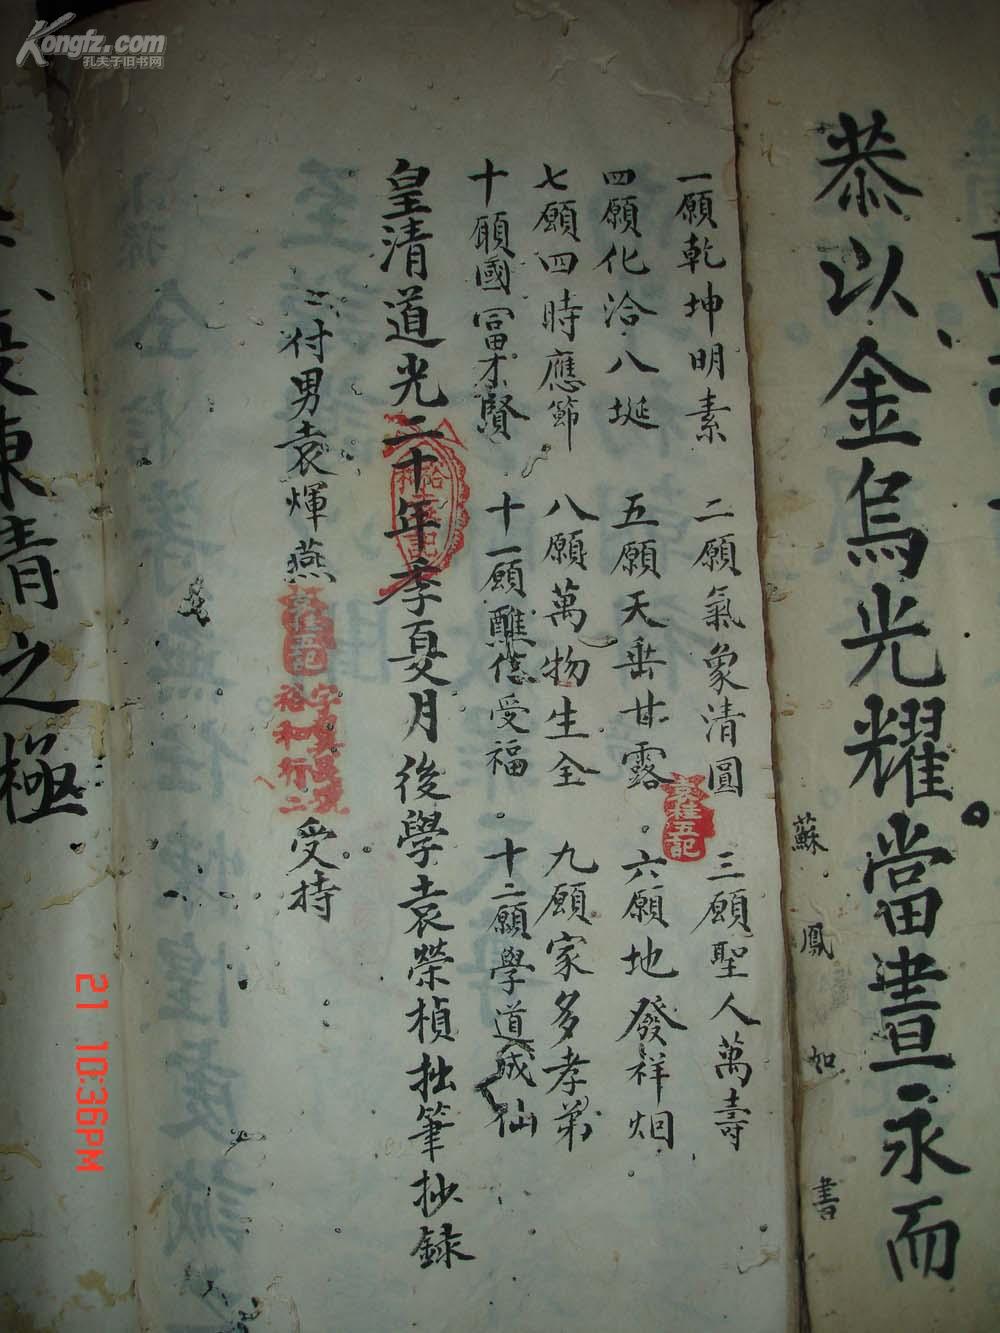 恭以金烏光耀。當晝永而
蘇鳳如書
一願乾坤明素 二願氣象清圓 三願聖人萬壽
四願化洽八埏 五願天垂甘露 六願地發祥烟
七願四時應節 八願萬物生全 九願家多孝弟
十願國富才賢 十一願醮信受福 十二願學道成仙
皇清道光二十年季夏月後學袁榮楨拙筆抄錄
二付男袁煇燕 受持
袁桂五記
袁桂五記
裕和行二
之極
Kongfz.com
孔夫子旧书网
21 10:36PM